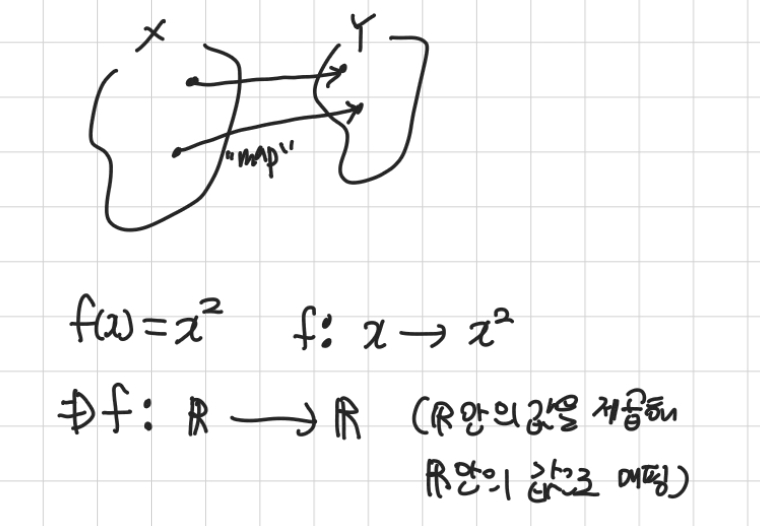 X Y
"map"
f(x) = x² f: x → x²
⇒ f: ℝ → ℝ (ℝ안의 값을 제곱해
ℝ안의 값으로 매핑)